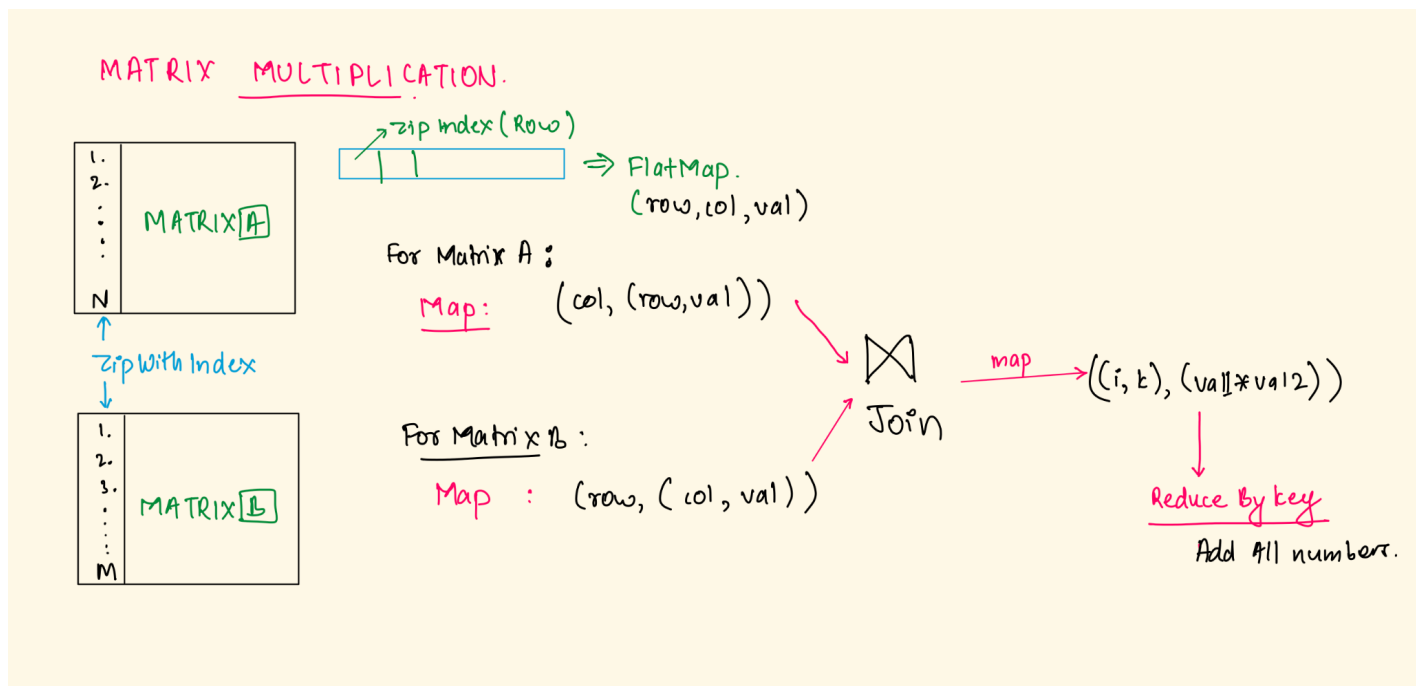 MATRIX MULTIPLICATION.
1.
2.
N
MATRIX A
zip index (Row)
⇒ FlatMap.
(row, col, val)
For Matrix A :
Map: (col, (row, val))
ZipWith Index
1.
2.
3.
M
MATRIX B
For Matrix B :
Map : (row, (col, val))
Join
map
((i, k), (val1*val2))
Reduce By key
Add All numbers.